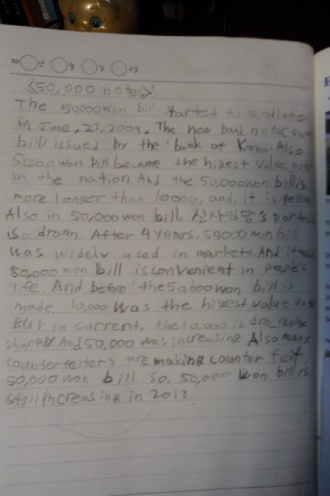 <50,000 notes>
The 50000 won bill started to circulate
in June, 23, 2009. The new bank notes
bills issued by the bank of Korea. Also
50000 won bill became the highest value note
in the nation. And the 50,000 won bill is
more longer than 10000, and, it is yellow
Also in 50,000 won bill, 신사임당's portrait
is drawn. After 4 years, 50000 won bill
was widely used in markets. And
50,000 won bill is convenient in people's
life. And before the 50000 won bill is
made 10,000 was the highest value note
But in current, the 10,000 is
sharply And 50,000 was increasing Also many
counterfeiters are making counter feit
50,000 won bill. So, 50,000 won bill is
still increasing in 2013.